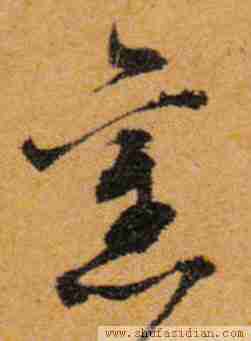 憲
www.shufasidian.com